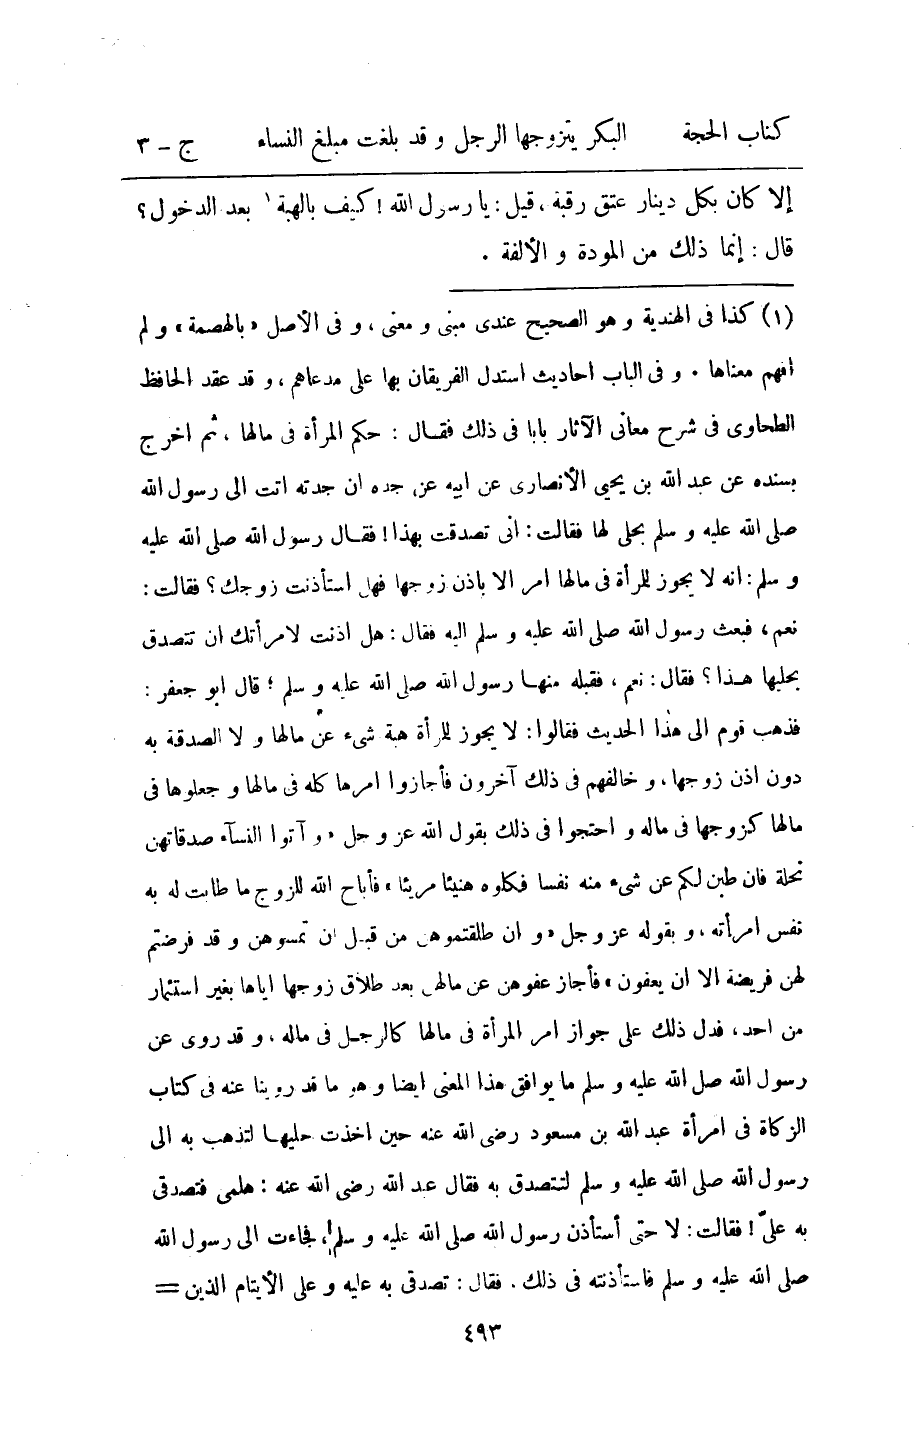 كتاب الحجة البكر يتزوجها الرجل و قد بلغت مبلغ النساء ج – ٣
إلا كان بكل دينار عتق رقبة ، قيل : يا رسول الله ! كيف بالهبة ١ بعد الدخول ؟
قال : إنما ذلك من المودة و الألفة .
(١) كذا فى الهندية و هو الصحيح عندى مبنى و معنى ، و فى الأصل « بالهصمة » و لم
افهم معناها . و فى الباب احاديث استدل الفريقان بها على مدعاهم ، و قد عقد الحافظ
الطحاوى فى شرح معانى الآثار بابا فى ذلك فقال : حكم المرأة فى مالها ، ثم اخرج
بسنده عن عبد الله بن يحيى الأنصارى عن ابيه عن جده ان جدته اتت الى رسول الله
صلى الله عليه و سلم بحلى لها فقالت : انى تصدقت بهذا ! فقال رسول الله صلى الله عليه
و سلم : انه لا يجوز للرأة فى مالها امر الا باذن زوجها فهل استأذنت زوجك ؟ فقالت :
نعم ، فبعث رسول الله صلى الله عليه و سلم اليه فقال : هل اذنت لامرأتك ان تتصدق
بحليها هذا ؟ فقال : نعم ، فقبله منها رسول الله صلى الله عليه و سلم ؛ قال ابو جعفر :
فذهب قوم الى هذا الحديث فقالوا : لا يجوز للرأة هبة شىء عن مالها و لا الصدقة به
دون اذن زوجها ، و خالفهم فى ذلك آخرون فأجازوا امرها كله فى مالها و جعلوها فى
مالها كزوجها فى ماله و احتجوا فى ذلك بقول الله عز و جل « و آتوا النسآء صدقاتهن
نحلة فان طبن لكم عن شىء منه نفسا فكلوه هنيئا مريئا » فأباح الله للزوج ما طابت له به
نفس امرأته ، و بقوله عز و جل « و ان طلقتموهن من قبل ان تمسوهن و قد فرضتم
لهن فريضة الا ان يعفون » فأجاز عفوهن عن مالهن بعد طلاق زوجها اياها بغير استئمار
من احد ، فدل ذلك على جواز امر المرأة فى مالها كالرجل فى ماله ، و قد روى عن
رسول الله صل الله عليه و سلم ما يوافق هذا المعنى ايضا و هو ما قد روينا عنه فى كتاب
الزكاة فى امرأة عبد الله بن مسعود رضى الله عنه حين اخذت حليها لتذهب به الى
رسول الله صلى الله عليه و سلم لتتصدق به فقال عبد الله رضى الله عنه : هلمى فتصدقى
به علىّ ! فقالت : لا حتى أستأذن رسول الله صلى الله عليه و سلم !، فجاءت الى رسول الله
صلى الله عليه و سلم فاستأذنته فى ذلك . فقال : تصدقى به عليه و على الأيتام الذين =
٤٩٣